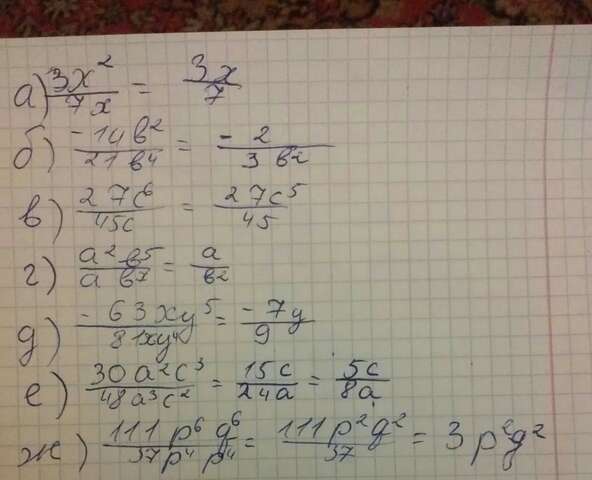 а) 3x²/7x = 3x/7
б) -14в²/21в⁴ = -2/3в²
в) 27c⁶/45c = 27c⁵/45
г) a²в⁵/aв⁷ = a/в²
д) -63xy⁵/81xy⁴ = -7y/9
е) 30a²c³/48a³c² = 15c/24a = 5c/8a
ж) 111p⁶g⁶/37p⁴p⁴ = 111p²g²/37 = 3p²g²